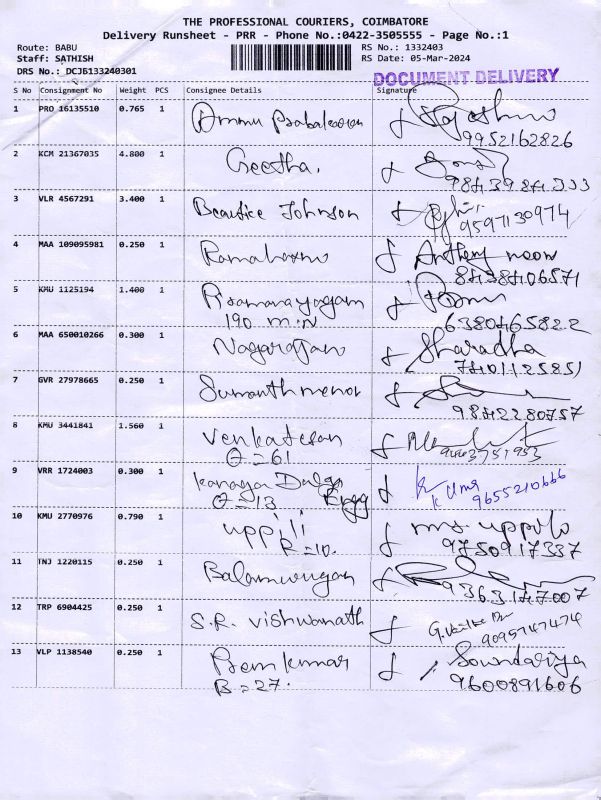 THE PROFESSIONAL COURIERS, COIMBATORE
Delivery Runsheet - PRR - Phone No.:0422-3505555 - Page No.:1
Route: BABU RS No.: 1332403
Staff: SATHISH RS Date: 05-Mar-2024
DRS No.: DCJB133240301 DOCUMENT DELIVERY
S No Consignment No Weight PCS Consignee Details Signature
1 PRO 16135510 0.765 1 Ammu Prabakaran
9952162826
2 KCM 21367035 4.800 1 Geetha.
9843984333
3 VLR 4567291 3.400 1 Beautice Johnson
9597130974
4 MAA 109095981 0.250 1 Ramalaxmi Anthony
8438406571
5 KMU 1125194 1.400 1
190 M.N 6380465822
6 MAA 650010266 0.300 1 Nagarajan Sharadha
7401125851
7 GVR 27978665 0.250 1 Sumanth menon
9842280757
8 KMU 3441841 1.560 1 Venkatesan
O = 61 9443751953
9 VRR 1724003 0.300 1 Kanaga K Uma
O = 13 Engg 9655210666
10 KMU 2770976 0.790 1 uppili ms. uppili
R = 10. 9750917337
11 TNJ 1220115 0.250 1 Balamurugan
9363147007
12 TRP 6904425 0.250 1 S.R. Vishwanath
9095747474
13 VLP 1138540 0.250 1 Premkumar Soundariya
B = 27. 9600891606